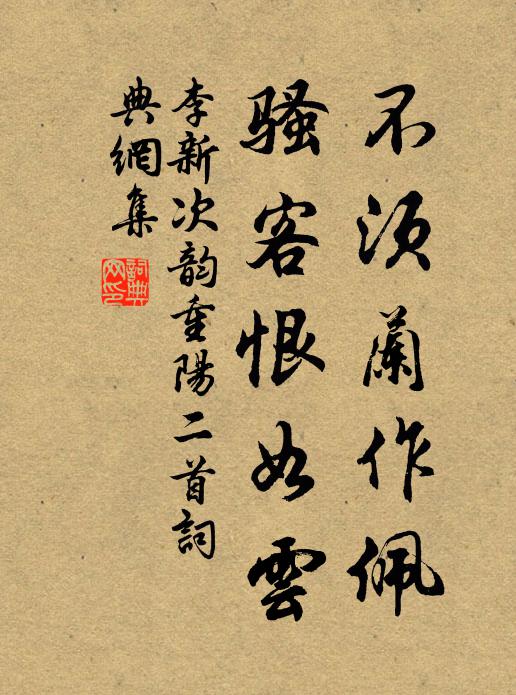 不須蘭作佩
騷客恨如雲
李新次韵重陽二首詞
典網集
詞典
网印